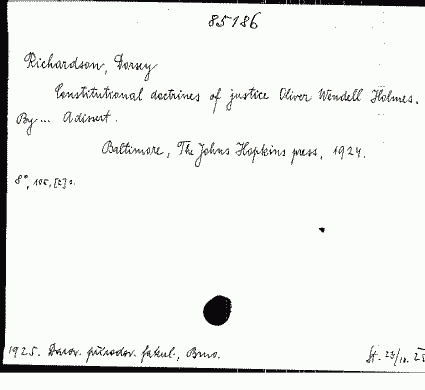 85186
Richardson, Dorsey
Constitutional doctrines of justice Oliver Wendell Holmes.
By... A dissert.
Baltimore, The Johns Hopkins press, 1924.
8°, 105, [2] s.
1925. Darov. přírodov. fakul., Brno.
St. 23/10. 25